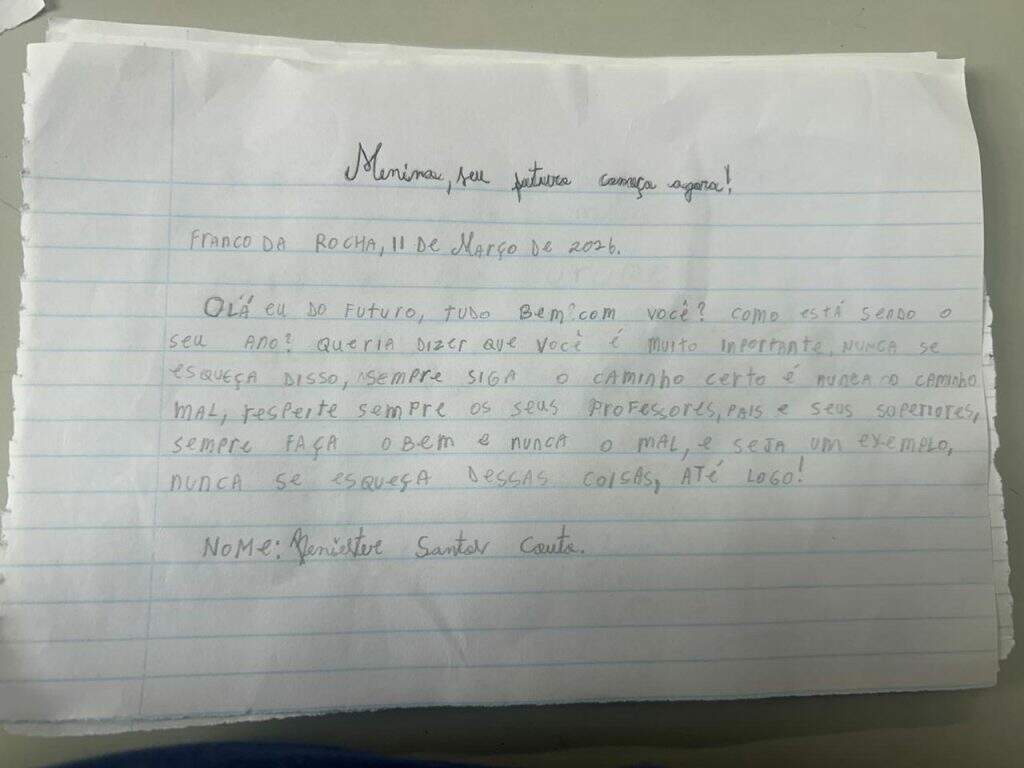 Menina, seu futuro começa agora!
FRANCO DA ROCHA, 11 DE MARÇO DE 2026.
OLÁ EU DO FUTURO, TUDO BEM? COM VOCÊ? COMO ESTÁ SENDO O
SEU ANO? QUERIA DIZER QUE VOCÊ É MUITO INPORTANTE, NUNCA SE
ESQUEÇA DISSO, SEMPRE SIGA O CAMINHO CERTO É NUNCA O CAMINHO
MAL, RESPEITE SEMPRE OS SEUS PROFESSORES, PAIS E SEUS SUPERIORES,
SEMPRE FAÇA O BEM E NUNCA O MAL, E SEJA UM EXEMPLO,
NUNCA SE ESQUEÇA DESSAS COISAS, ATÉ LOGO!
NOME: Santos Couto.